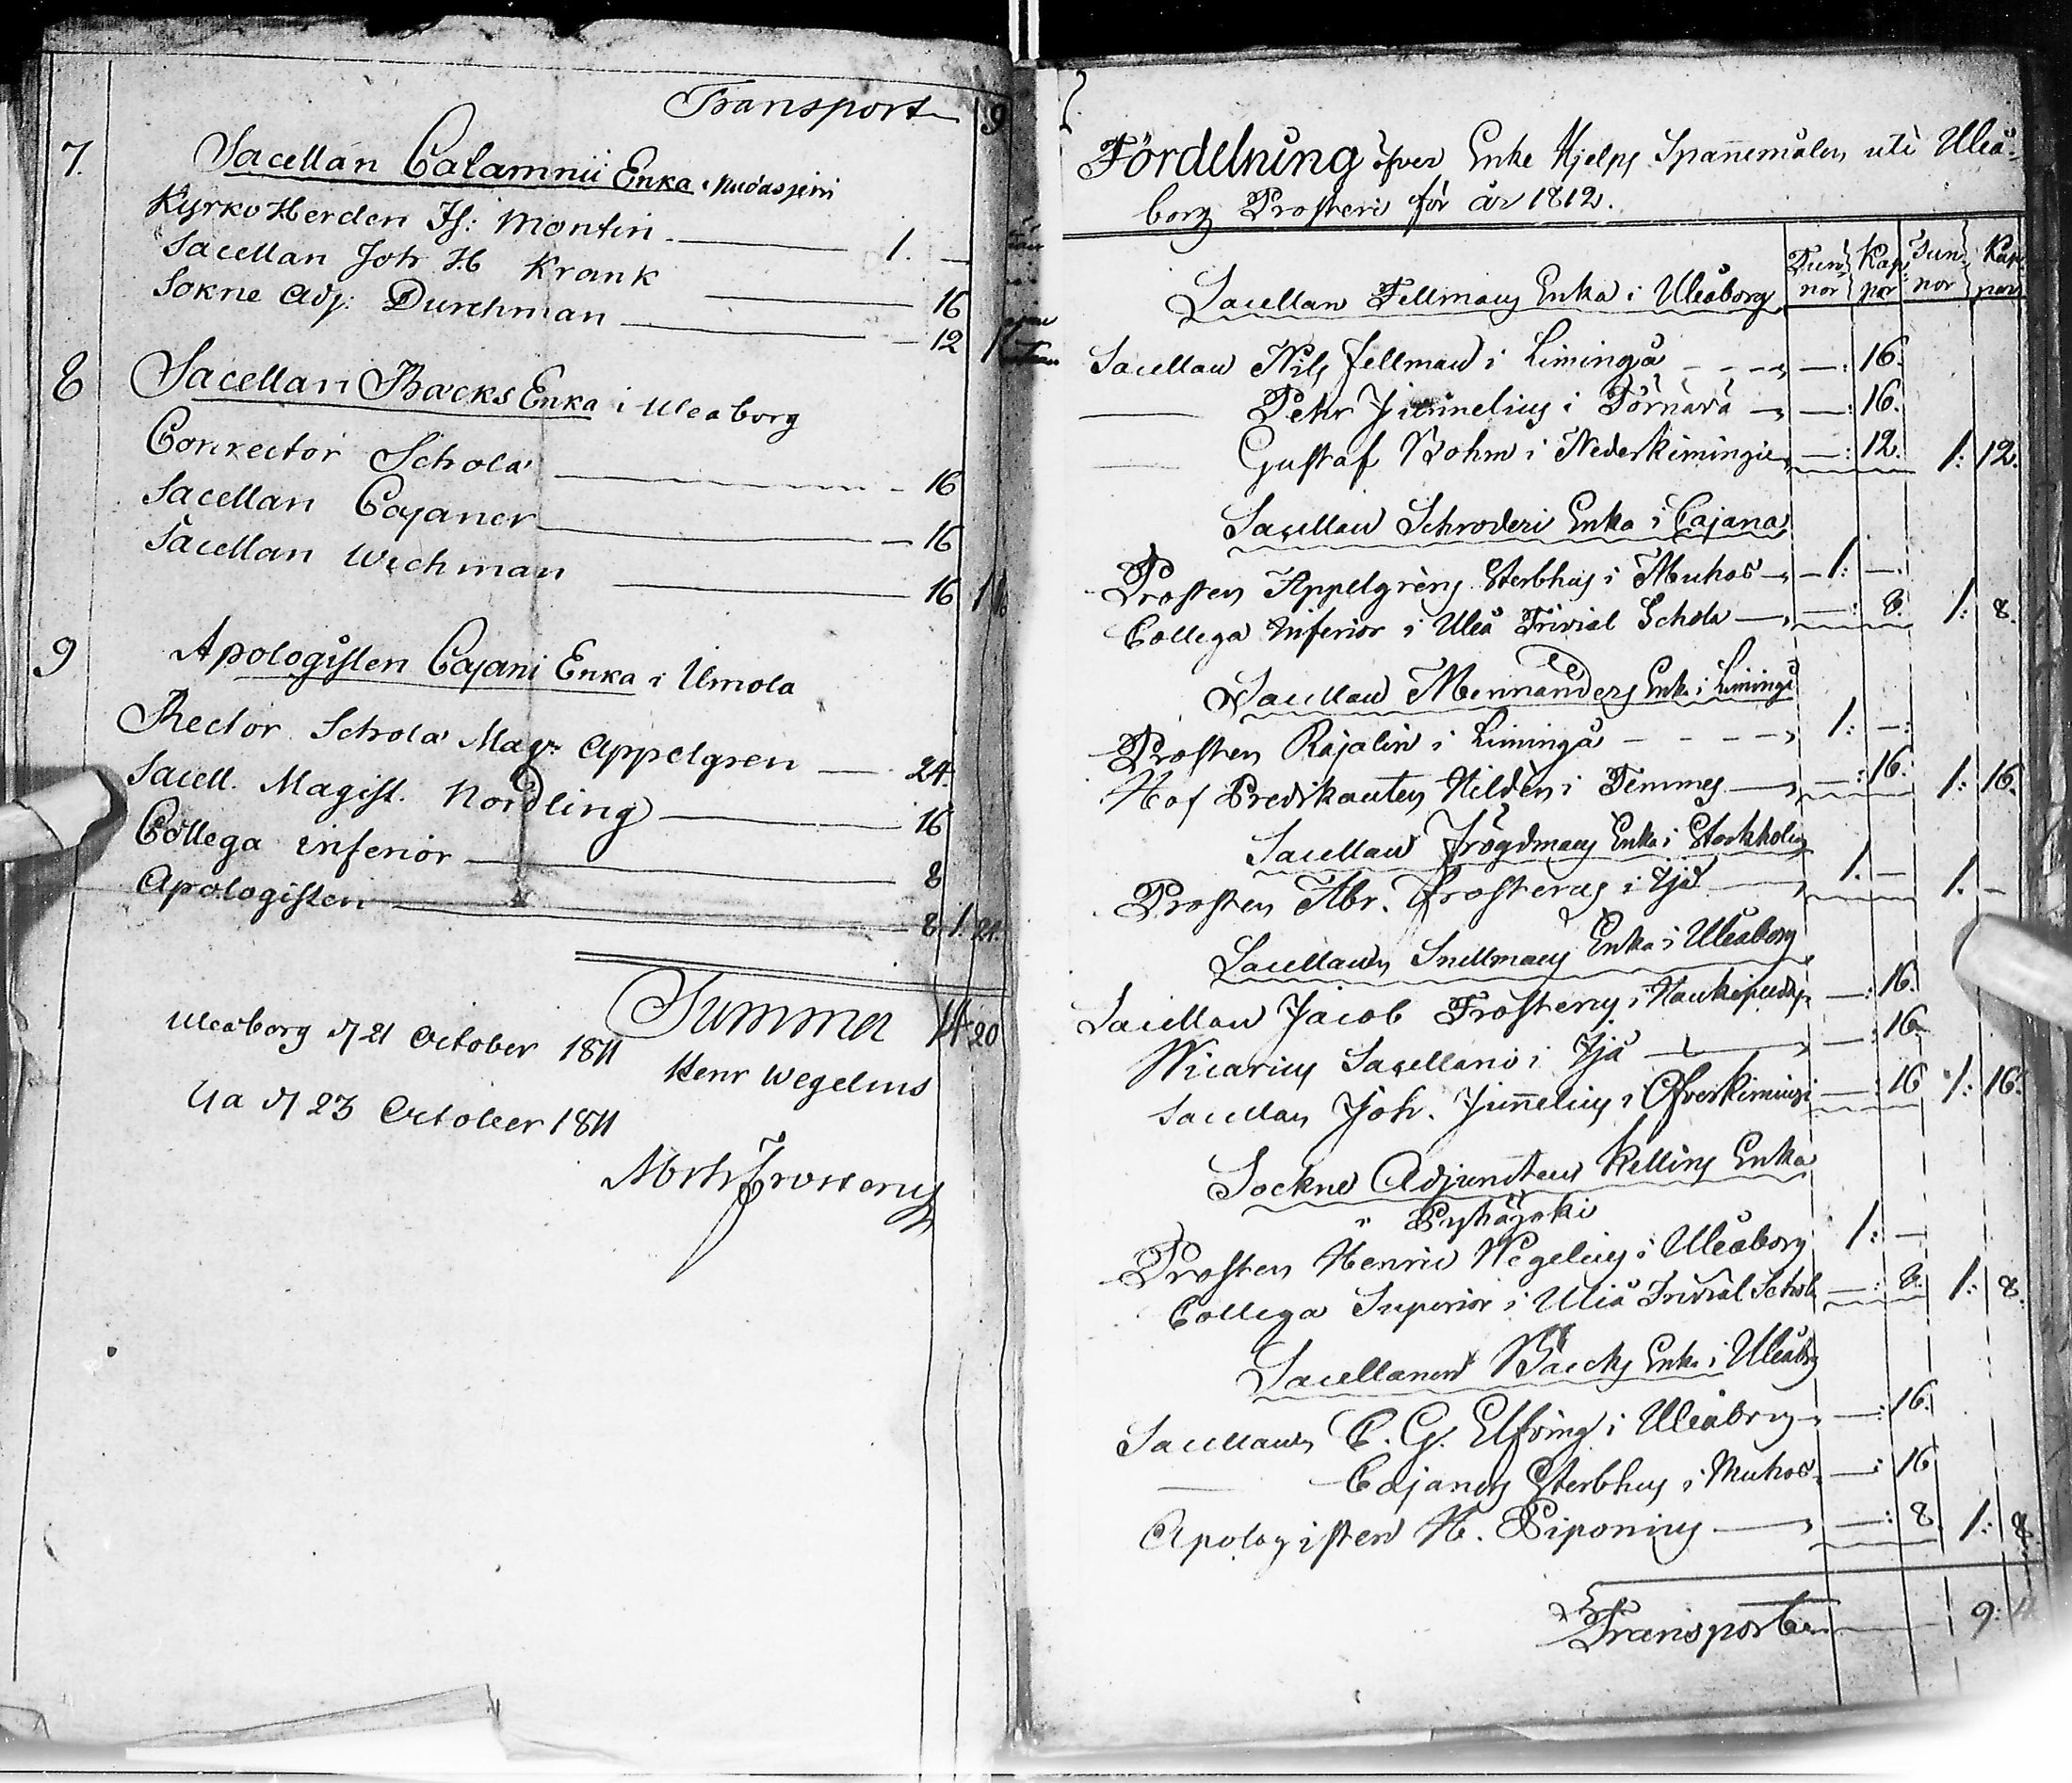 Transport 9
7. Sacellan Calamnii Enka i
Kyrko Herden Is: Montin 1. —
Sacellan Joh H Krank 16
Sokne Adj: Durchman — 12 1
8 Sacellan Backs Enka i Uleaborg
Conrector Schola 16
Sacellan Cajaner — 16
Sacellan Wichman 16 1
9 Apologisten Cajani Enka i Umola
Rector Schola Mag. Appelgren — 24.
Sacell. Magist. Nordling 16
Collega inferior 8
Apologisten 8 1. 21.
Summa 14 20
Uleaborg d 21 October 1811
Henr Wegelius
Ija d 23 October 1811

Fördelning öfver Enke Hjelps Spannemålen uti Uleå-
borg Prosteri för år 1812.
Tun nor Kap par Tun nor Kap par
Sacellan Fellmans Enka i Uleåborg
Sacellan Nils Fellman i Limingå —: 16.
—— Pehr Junnelius i Törnävä —: 16.
—— Gustaf Bohm i Nederkimingie —: 12. 1: 12.
Sacellan Schroderi Enka i Cajana
Prosten Appelgrens Sterbhus i Muhos — 1: —.
Collega Inferior i Uleå Trivial Schola —: 8. 1: 8.
Sacellan Mennanders Enka i Limingå
Prosten Rajalin i Limingå 1: —:
Hof Predikanten Hildén i Temmes —: 16. 1: 16.
Sacellan Frögdmans Enka i Stockholm
Prosten Abr. Frosterus i Ijå 1. — 1. —
Sacellan Snellmans Enka i Uleåborg
Sacellan Jacob Frosterus i Haukipudas —: 16.
Vicarius Sacellano i Ijå —: 16.
Sacellan Joh. Junnelius i Öfverkimingi —: 16 1: 16.
Sockne Adjuncten Kellins Enka
i Pyhäjoki
Prosten Henric Wegelius i Uleåborg 1: —
Collega Superior i Uleå Trivial Schola —: 8. 1: 8.
Sacellanen Baecks Enka i Uleåborg
Sacellan C. G. Elfving i Uleåborg —: 16.
—— Cajanders Sterbhus i Muhos —: 16
Apologisten H. Piponius —: 8. 1: 8.
Transport 9: